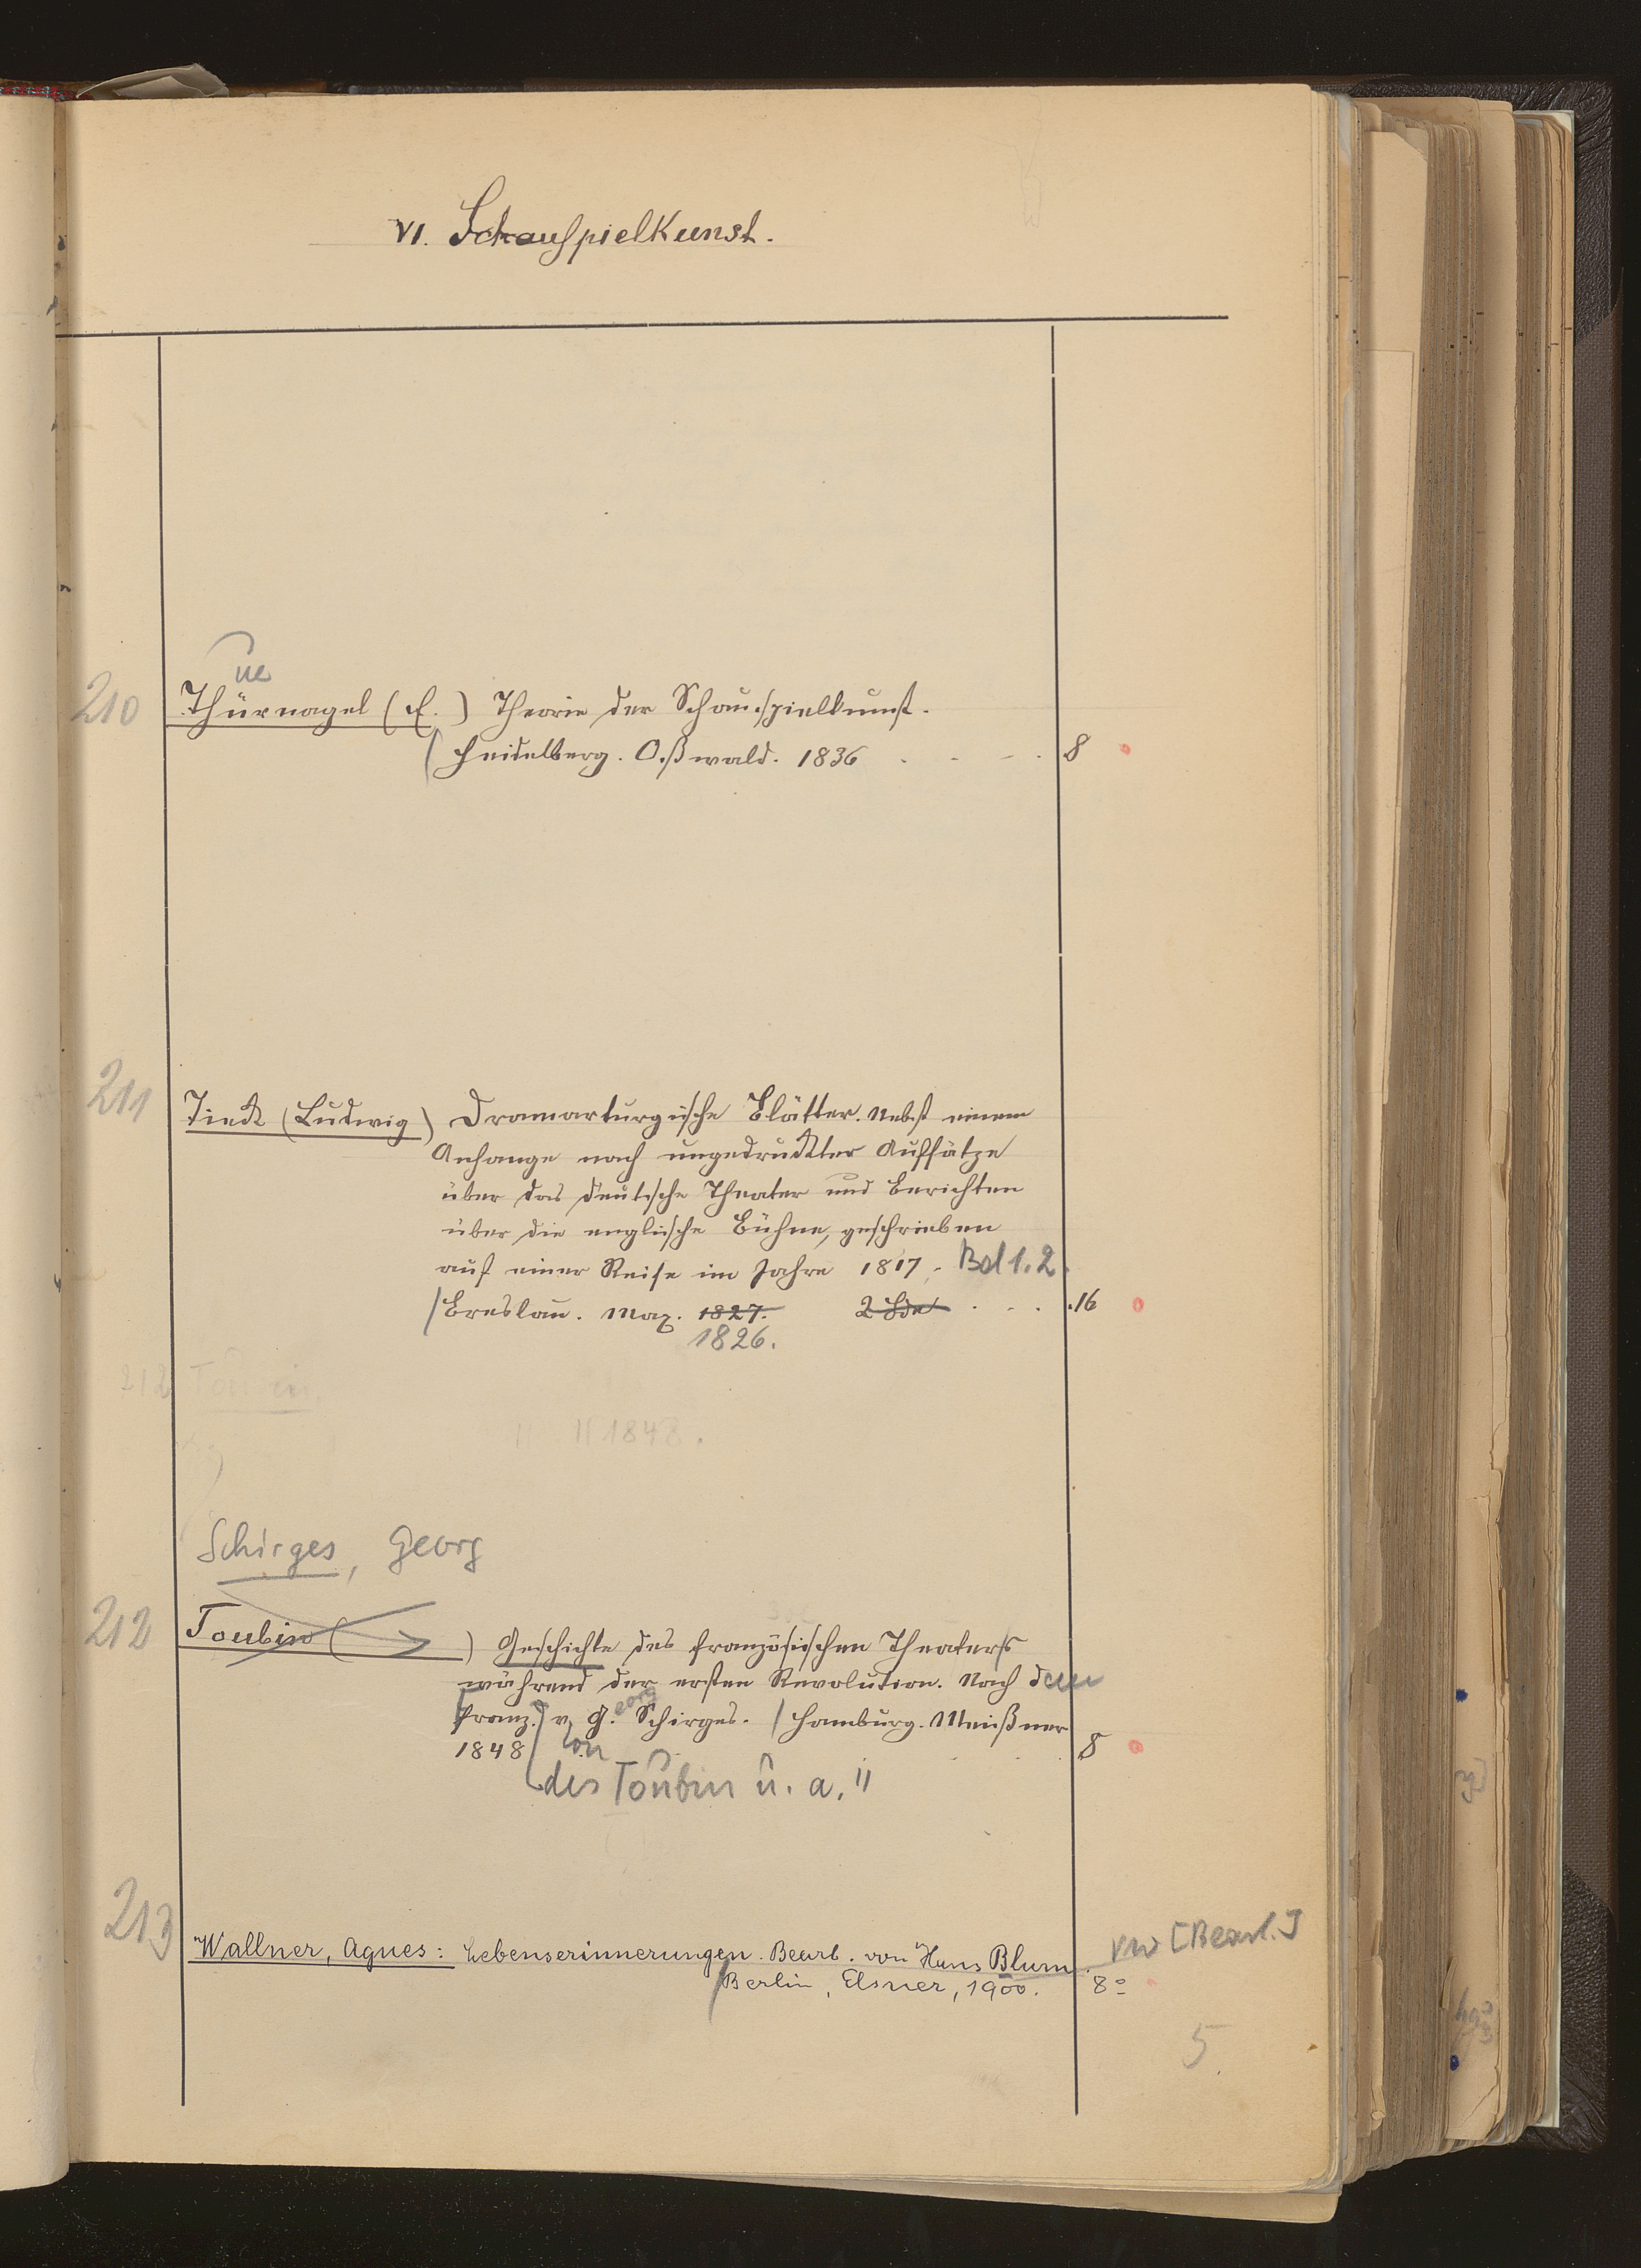 VI. Schauspielkunst.
ue
210 Thürnagel (E.) Theorie der Schauspielkunst.
Heidelberg. Oßwald. 1836 . - - . 8
211 Tieck (Ludwig) Dramarturgische Blätter. Nebst einem
Anhange noch ungedruckter Aufsätze
über das deutsche Theater und Berichten
über die englische Bühne, geschrieben
auf einer Reise im Jahre 1817. Bd 1.2.
/Breslau. Max. 1827. 2 Bde . . . 16
1826.
212
1848.
Schirges, Georg
212 Toubin ( ) Geschichte des französischen Theaters
während der ersten Revolution. Nach dem
Franz. v. G. eorg Schirges. / Hamburg. Meißner
1848 von 8
des Toubin u. a."
213 Wallner, Agnes: Lebenserinnerungen. Bearb. von Hans Blum. vw [Bearb.]
/Berlin, Elsner, 1900. 8°
5